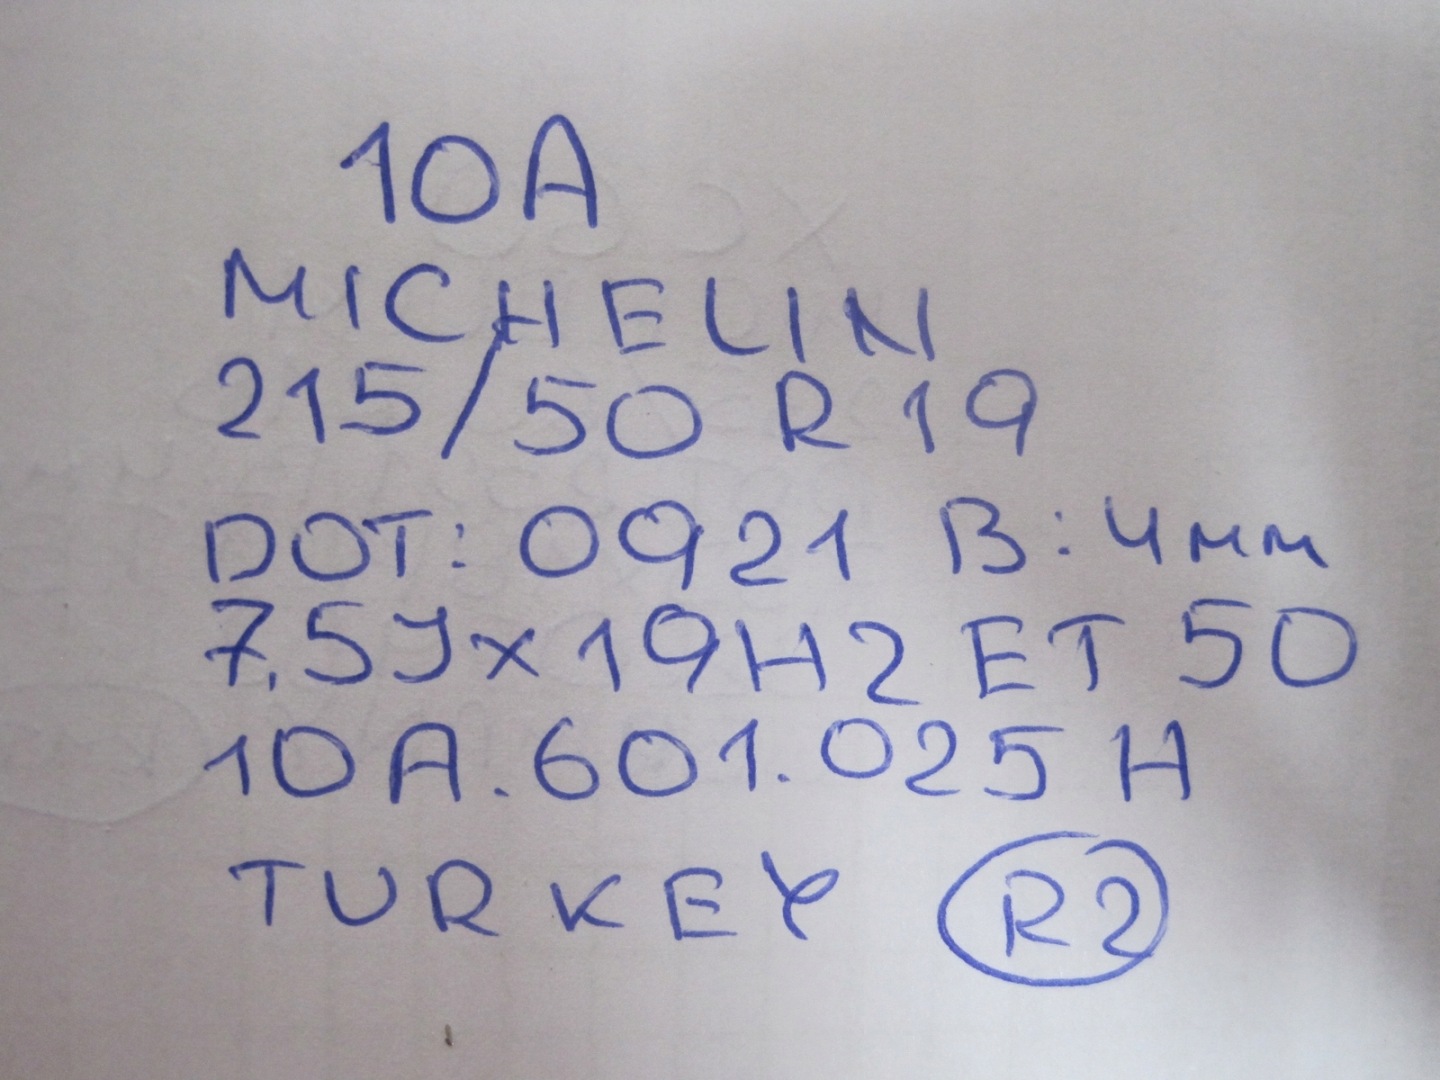 10A
MICHELIN
215/50 R 19
DOT: 0921 B: 4мм
7.5Jx19H2 ET 50
10A.601.025 H
TURKEY R2